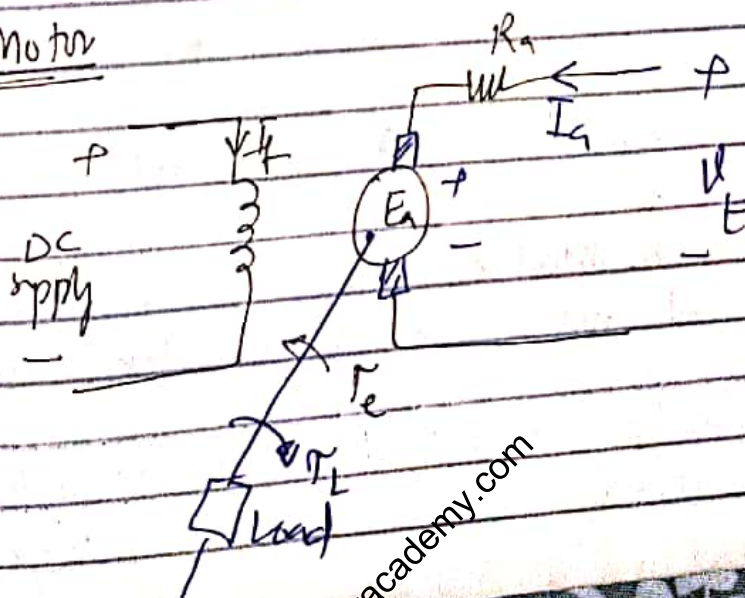 Motor
Ra
+
Ia
+
If
+
Ea
-
Vt
-
DC
supply
-
Te
TL
Load
academy.com